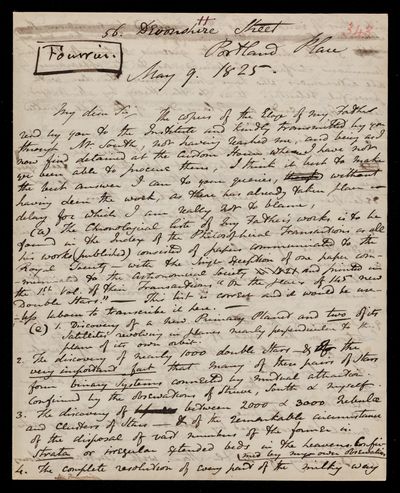 56. Devonshire Street
343
Fourrier.
Portland Place
May 9. 1825.
My dear Sir The copies of the Eloge of my Father
read by you to the Institute and kindly transmitted by you
through Mr South, not having reached me, and being as I
now find detained at the Custom House where I have not
yet been able to procure them, I think it best to make
the best answer I can to your queries, without
having seen the work, as there has already taken place
delay for which I am really not to blame,
(a) The Chronological list of my Father's works is to be
found in the Index of the Philosophical Transactions as all
his works (published) consisted of papers communicated to the
Royal Society with the single exception of one paper com-
-municated to the Astronomical Society and printed in
the 1st Vol. of their Transactions "On the places of 145 new
Double Stars." — This list is correct and it would be use-
-less labour to transcribe it here. —
(e) 1. Discovery of a new Primary Planet and two of its
Satellites revolving in planes nearly perpendicular to the
plane of its own orbit.
2. The discovery of nearly 1000 double Stars & of the
very important fact that many of these pairs of Stars
form binary Systems connected by mutual attraction
confirmed by the observations of Struve, South & myself
3. The discovery of between 2000 & 3000 Nebulæ
and Clusters of Stars — & of the remarkable circumstance
of the disposal of vast numbers of the former in
Strata or irregular extended beds in the heavens, Confir-
-med by my own observations
4. The complete resolution of every part of the milky way